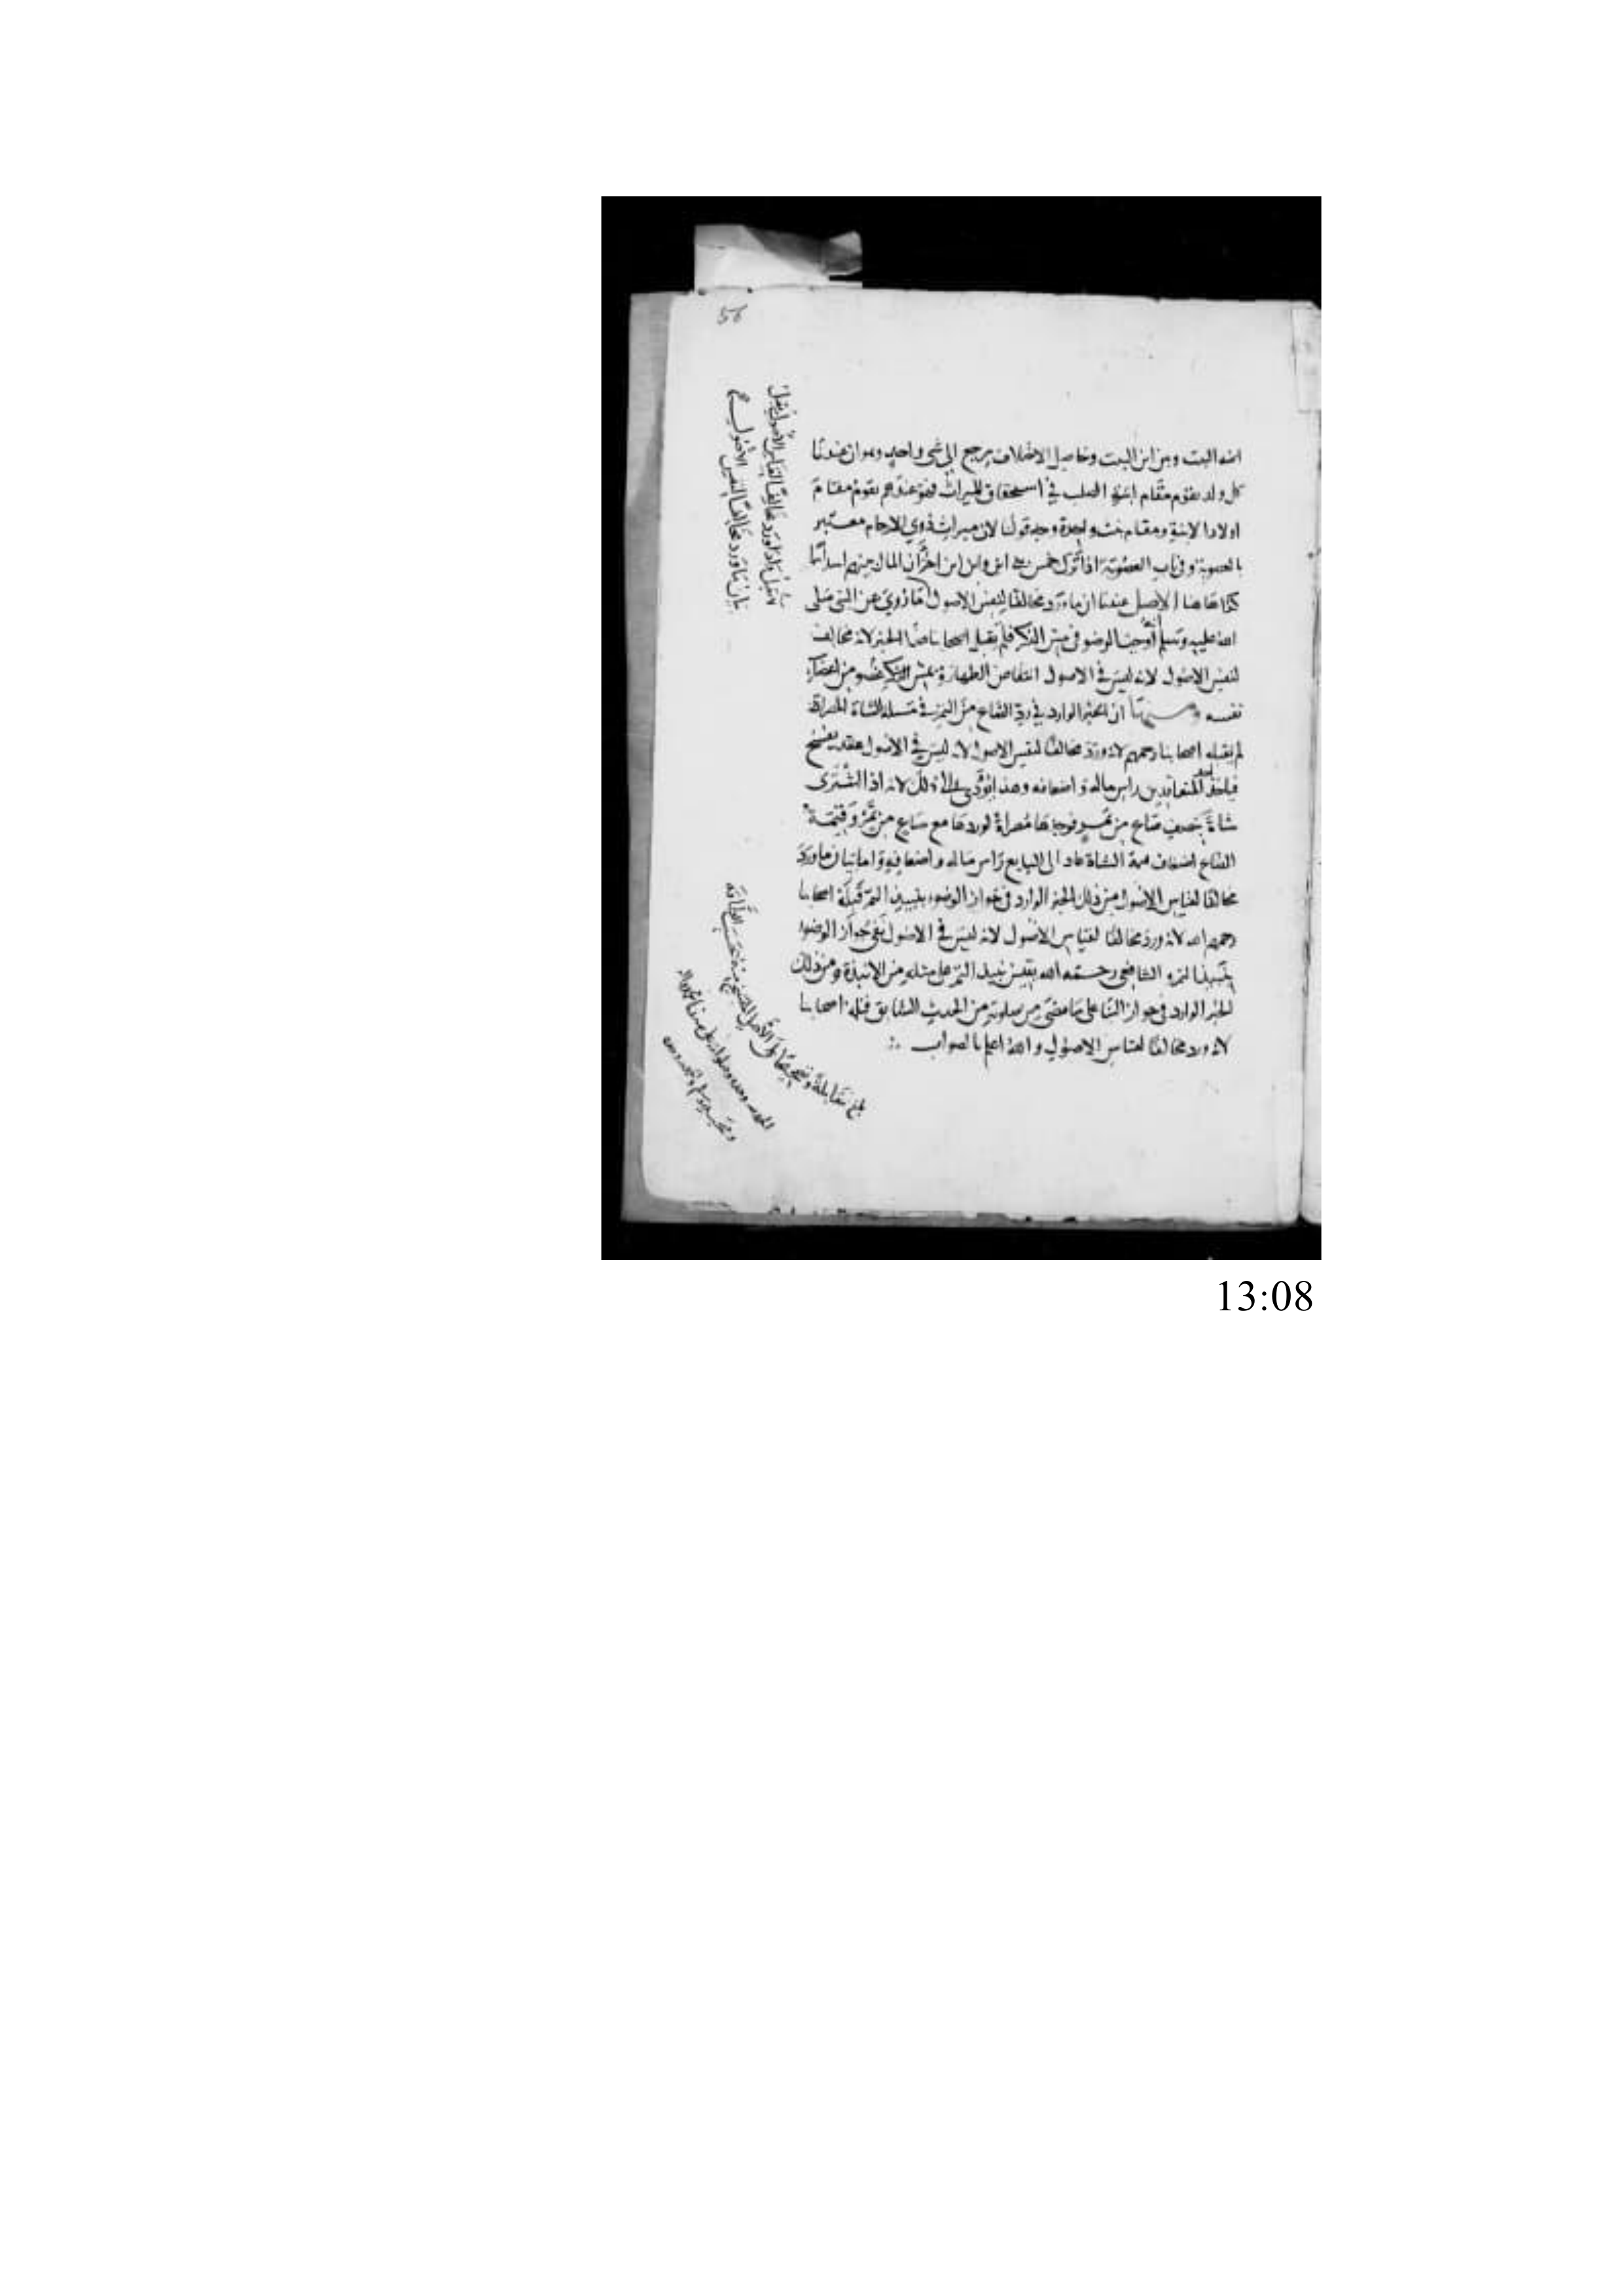 56
ابنه البنت وبين ابن البنت وحاصل الاختلاف يرجع الى شى واحد وهو ان عندنا
كل ولد يقوم مقام ابنة الصلب في استحقاق الميراث فهو عندهم يقوم مقام
اولاد الابنة ومقام بنت واحدة وجه قولنا لان ميراث ذوي الارحام معتبر
بالعصوبة وفي باب العصوبة اذا ترك خمس بني ابن وابن ابن اخر ان المال بينهم اسداسا
كذا هاهنا الاصل عندنا ان ما ورد مخالفا لنفس الاصول ما روي عن النبي صلى
الله عليه وسلم اوجب الوضو في مس الذكر فلم يقبل اصحابنا هذا الخبر لانه مخالف
لنفس الاصول لانه ليس في الاصول انتقاض الطهارة بمس الذكر عضو من اعضاء
نفسه ومنها ان الخبر الوارد في رد الصاع من التمر في مسلة الشاة المصراة
لم يقبله اصحابنا رحمهم لانه ورد مخالفا لنفس الاصول لانه ليس في الاصول عقد يفسخ
فياخذ احد المتعاقدين راس ماله و اضعافه وهذا يؤدي الى ذلك لانه اذا اشترى
شاة بنصف صاع من تمر فوجدها مصراة لو ردها مع صاع من تمر وقيمة
الصاع اضعاف قيمة الشاة عاد الى البايع راس ماله و اضعافه و اما بيان ما ورد
مخالفا لقياس الاصول من ذلك الخبر الوارد في جواز الوضوء بنبيذ التمر قبله اصحابنا
رحمهم الله لانه ورد مخالفا لقياس الاصول لانه ليس في الاصول نفي جواز الوضوء
بنبيذ التمر الشافعي رحمه الله يقيس نبيذ التمر على مثله من الانبذة ومن ذلك
الخبر الوارد في جواز البنا على ما مضى من صلوته من الحدث السابق قبله اصحابنا
لانه ورد مخالفا لقياس الاصول والله اعلم بالصواب
يقبل اذا ورد مخالفا لقياس الاصول
بيان ما ورد مخالفا لنفس الاصول
بلغ مقابلة وتصحيحا على الاصل المنسخ منه حسب الطاقة
13:08